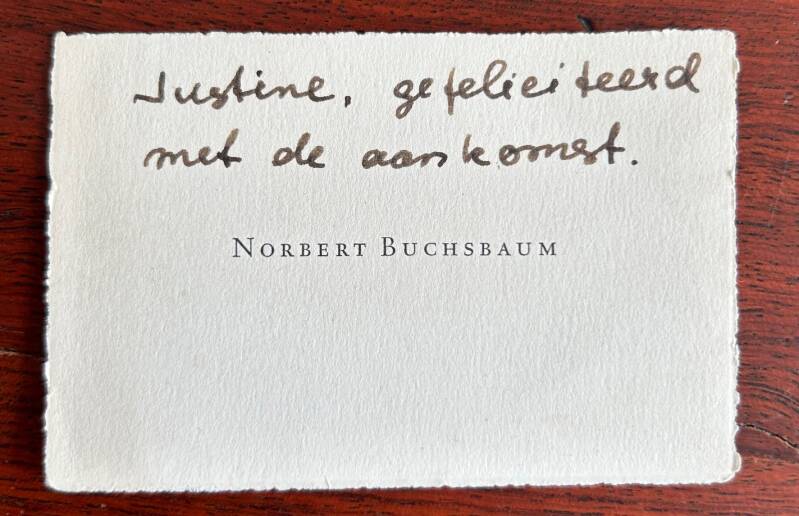 Justine, gefeliciteerd
met de aankomst.
NORBERT BUCHSBAUM